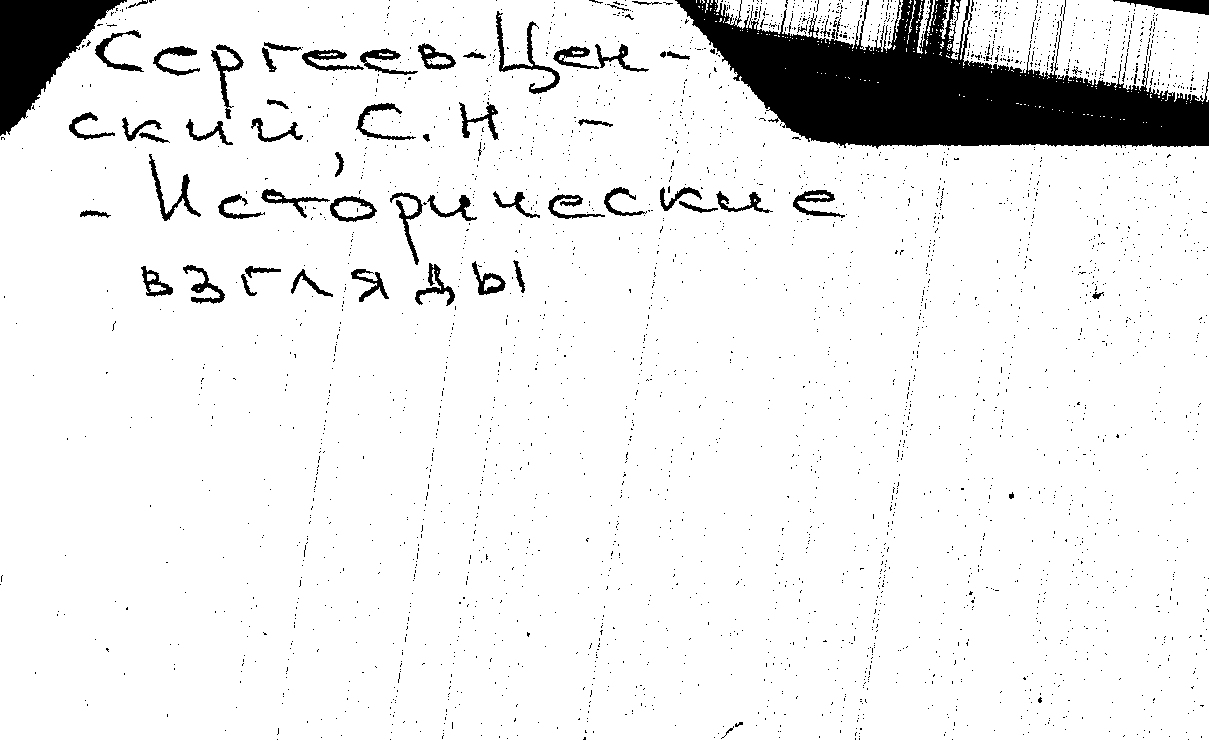 Сергеев-Цен-
ский, С.Н -
- Исторические
взгляды